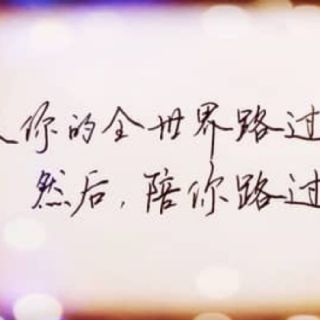 你的全世界路过
然后,陪你路过